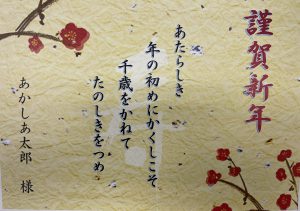 謹賀新年
あたらしき
年の初めにかくしこそ
千歳をかねて
たのしきをつめ
あかしあ太郎 様